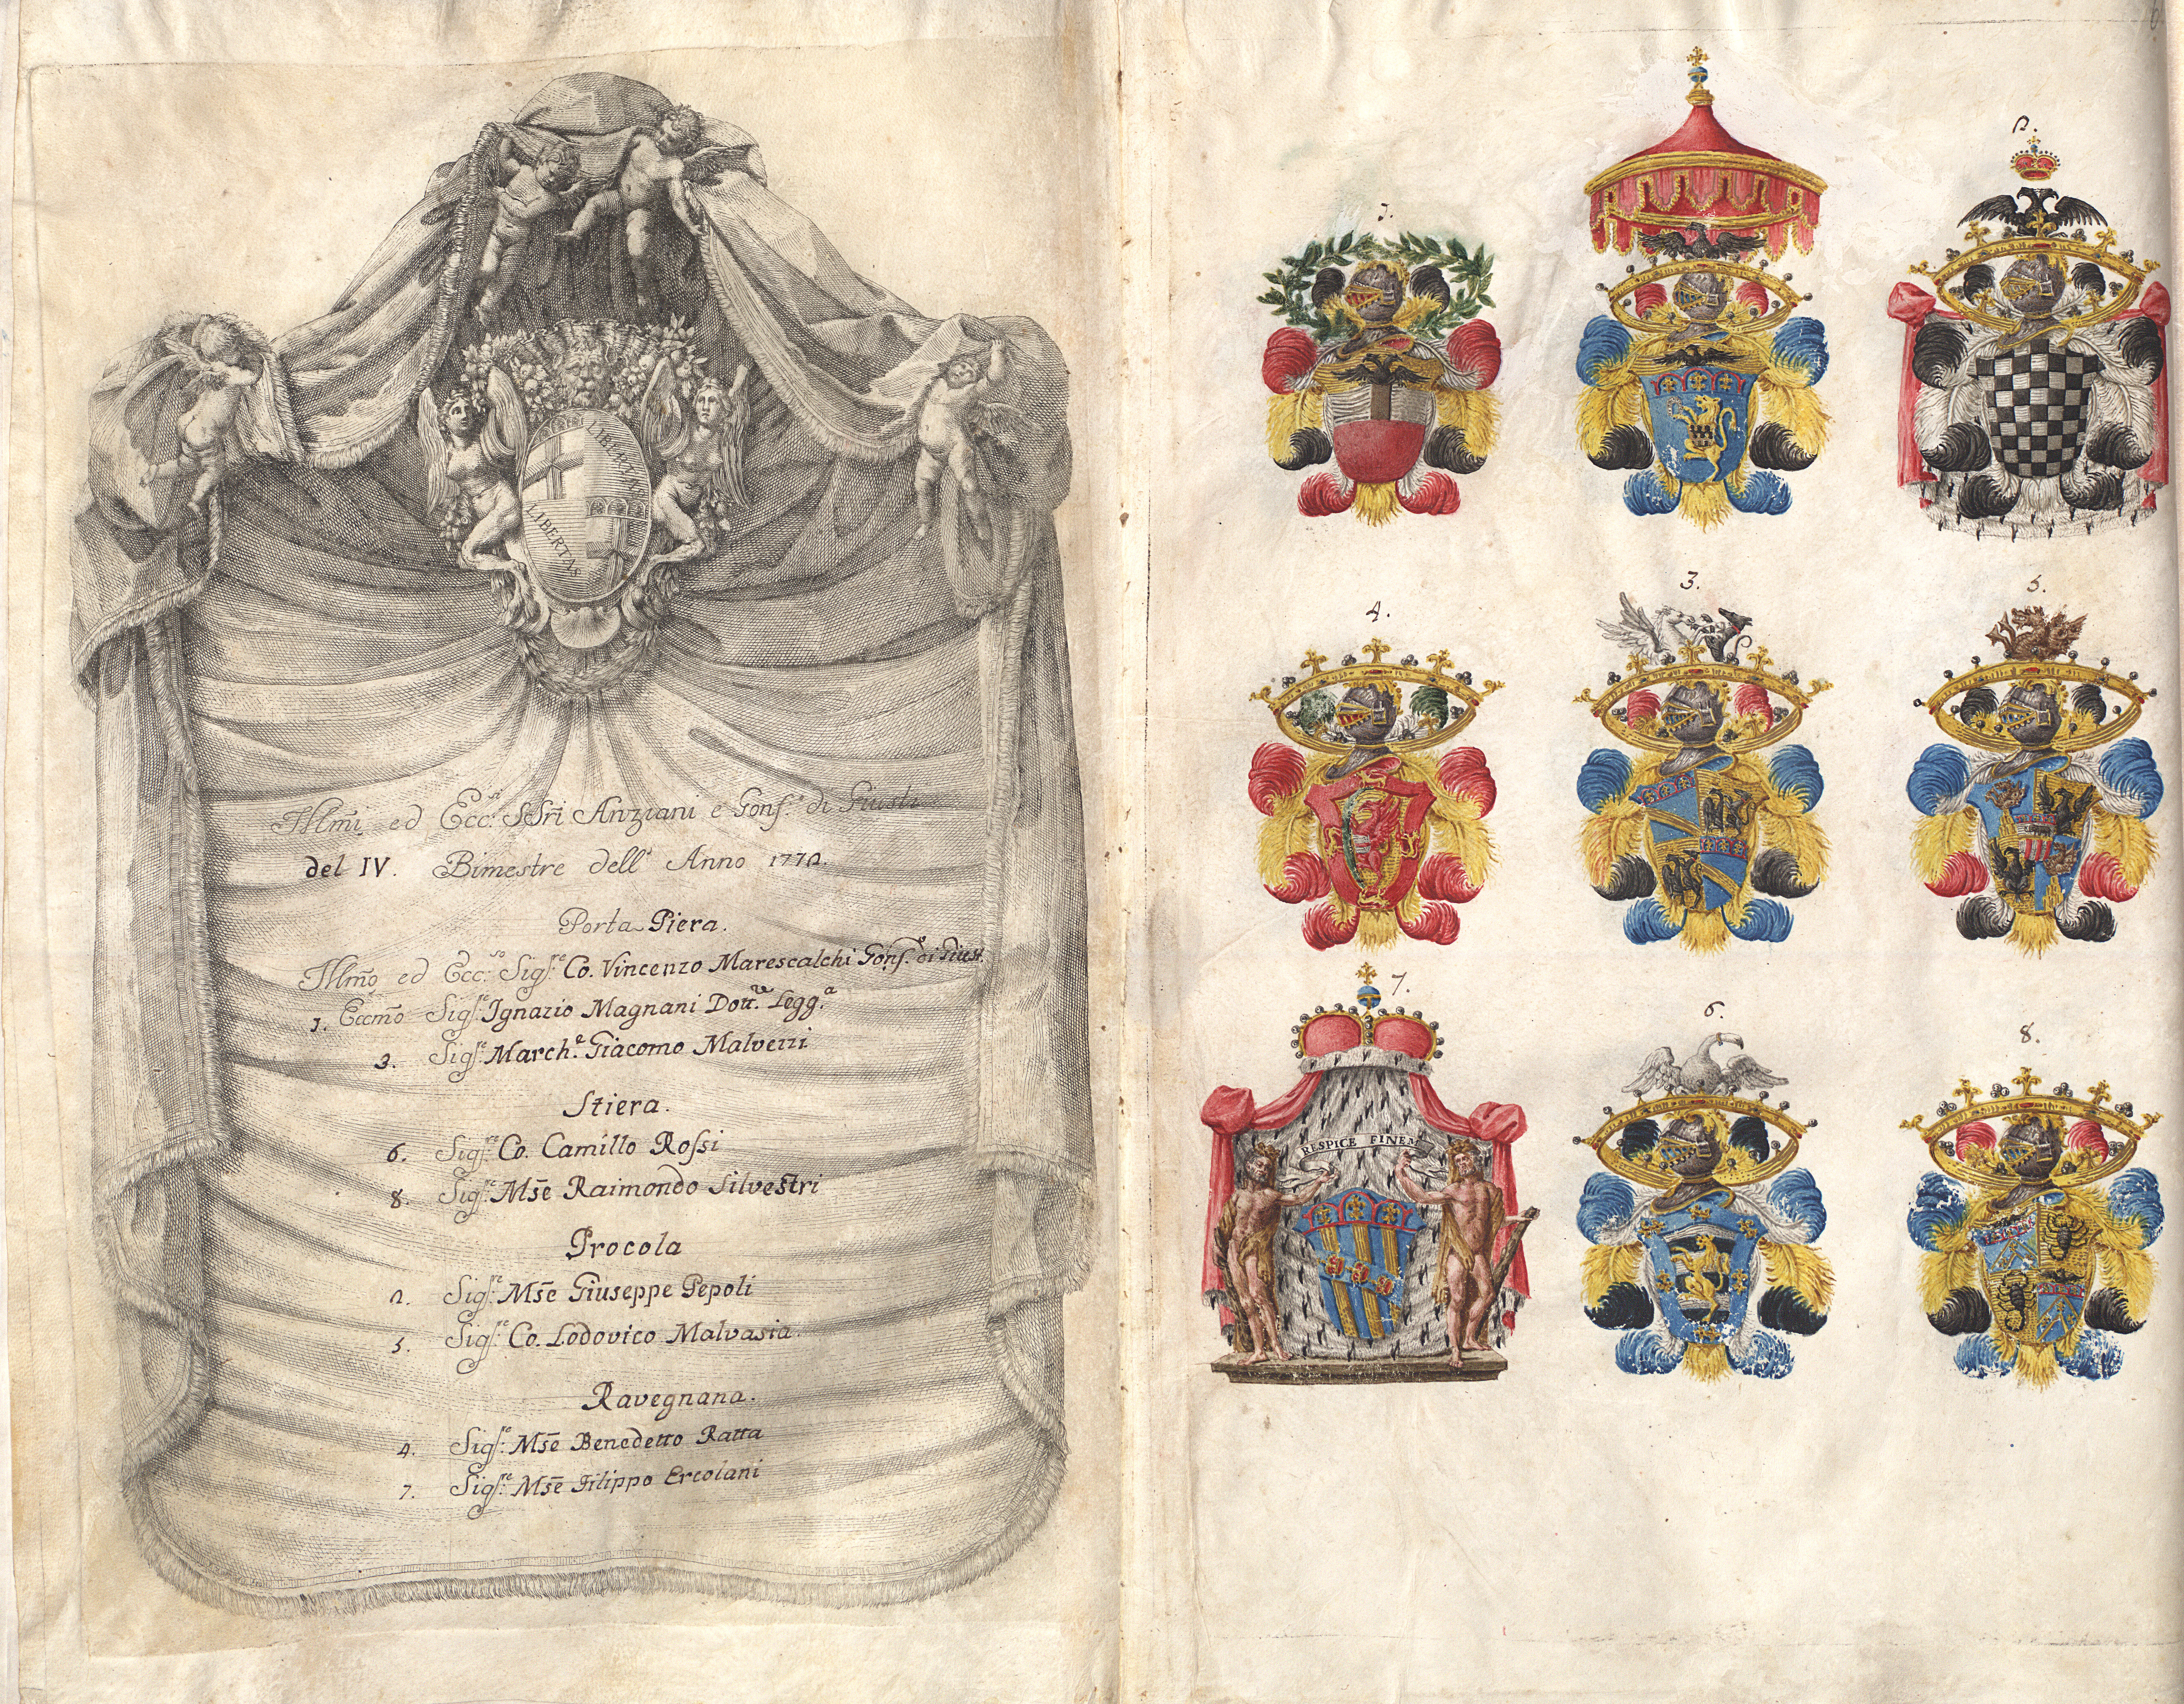 LIBERTAS
LIBERTAS
Illmi ed Ecc.si SSri Anziani e Gonf.e di Giusti
del IV. Bimestre dell' Anno 1772.
Porta Piera.
Illmo ed Ecc.so Sig.re Co. Vincenzo Marescalchi Gonf.e di Giust.
1. Eccmo Sig.re Ignazio Magnani Dott.re Legg.a
3. Sig.re March.e Giacomo Malvezzi
Stiera.
6. Sig.re Co. Camillo Rossi
8. Sig.re Mse Raimondo Silvestri
Procola
2. Sig.re Mse Giuseppe Pepoli
5. Sig.re Co. Lodovico Malvasia.
Ravegnana.
4. Sig.re Mse Benedetto Ratta
7. Sig.re Mse Filippo Ercolani
6
1.
2.
4.
3.
5.
7.
RESPICE FINEM
6.
8.